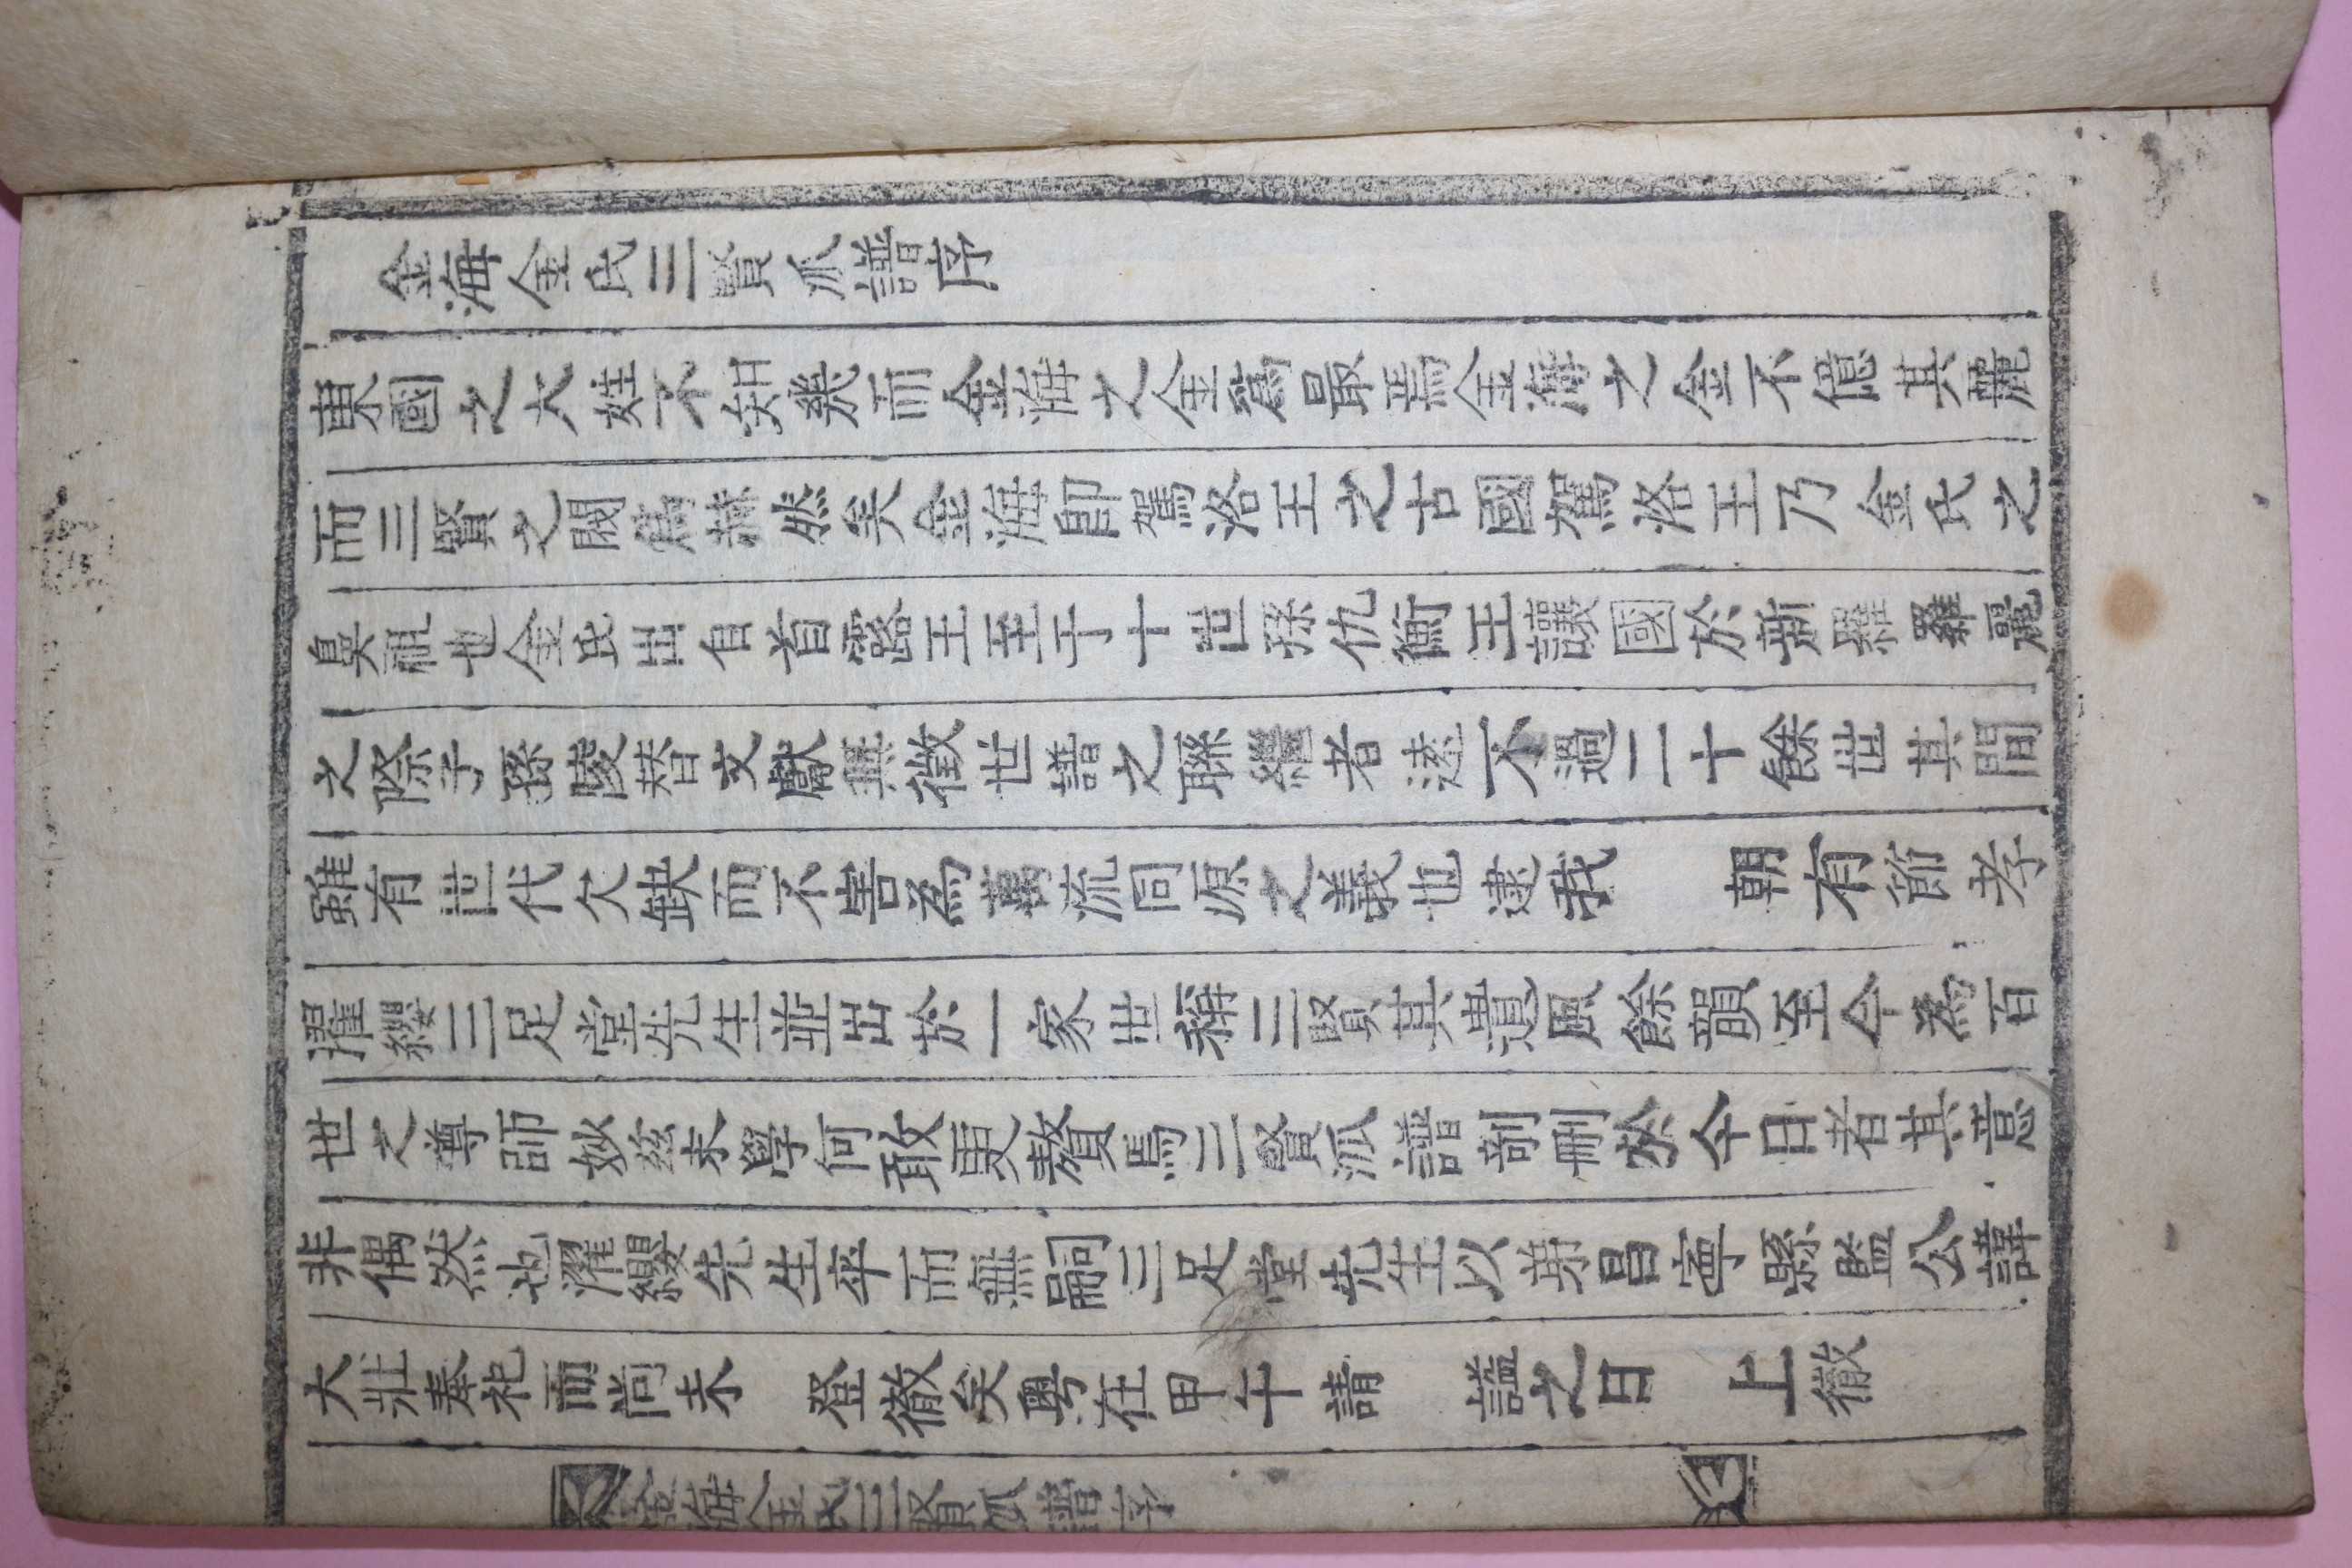 金海金氏三賢派譜序
東國之大姓不知幾而金海之金爲最焉金海之金不億其麗
而三賢之閥爲赫然矣金海卽駕洛王之古國駕洛王乃金氏之
鼻祖也金氏出自首露王至于十世孫仇衡王讓國於新羅羅麗
之際子孫陵替文獻無徵世譜之聯繼者遠不過二十餘世其間
雖有世代欠缺而不害爲萬流同源之義也逮我 朝有節孝
濯纓三足堂先生並出於一家世稱三賢其遺風餘韻至今爲百
世之尊師妙玆末學何敢更贅焉三賢派譜剞刪於今日者其意
非偶然也濯纓先生卒而無嗣三足堂先生以弟昌寧縣監公諱
大壯奉祀而尙未 登徹矣粤在甲午請 謚之日 上徹
金海金氏三賢派譜序